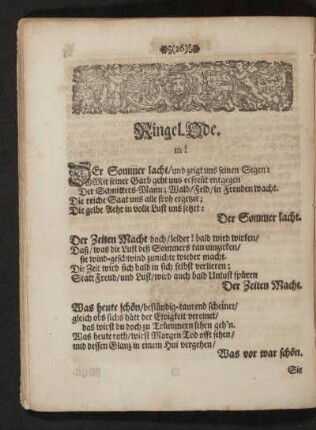 (26)
Ringel-Ode.
m!
DEr Sommer lacht/und zeigt uns seinen Segen:
Mit seiner Garb geht uns erfreut entgegen
Der Schnitters-Mann; Wald/Feld/in Freuden wacht.
Die reiche Saat uns alle froh ergetzet;
Die gelbe Aehr in volle Lust uns setzet:
Der Sommer lacht.
Der Zeiten Macht doch/leider! bald wird wirken/
Daß/was die Lust deß Sommers kan umzirken/
sie wind-geschwind zunichte wieder macht.
Die Zeit wird sich bald in sich selbst verlieren:
Statt Freud/und Lust/wird auch bald Unlust spüren
Der Zeiten Macht.
Was heute schön/beständig-taurend scheinet/
gleich obs sichs hätt der Ewigkeit vereinet/
das wirst du doch zu Trümmern sehen geh'n.
Was heute roth/wirst Morgen Tod offt sehen/
und dessen Glanz in einem Hui vergehen/
Was vor war schön.
Sie